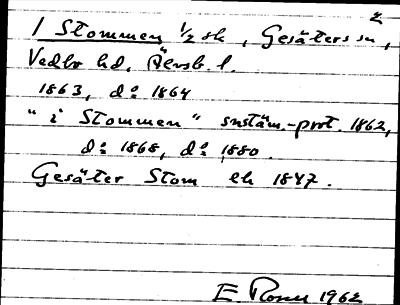 2
1 Stommen 1/2 sk, Gesäters sn,
Vedbo hd, Älvsb. l.
1863, d:o 1864
"i Stommen" snstäm.-prot. 1862,
d:o 1868, d:o 1880.
Gesäter Stom ek 1847.
E. Rosen 1962